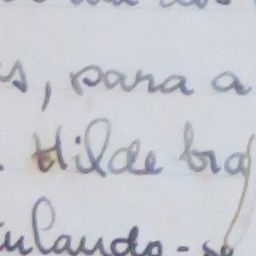 s, para a
. Hildebra
ulando-se